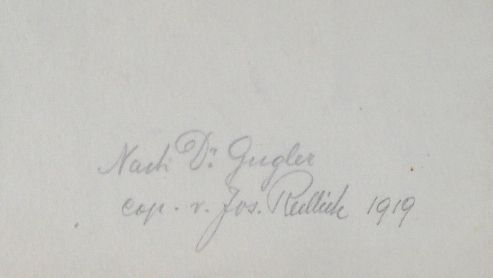 Nach Dr. Gugler
cop. v. Jos. Rullich 1919